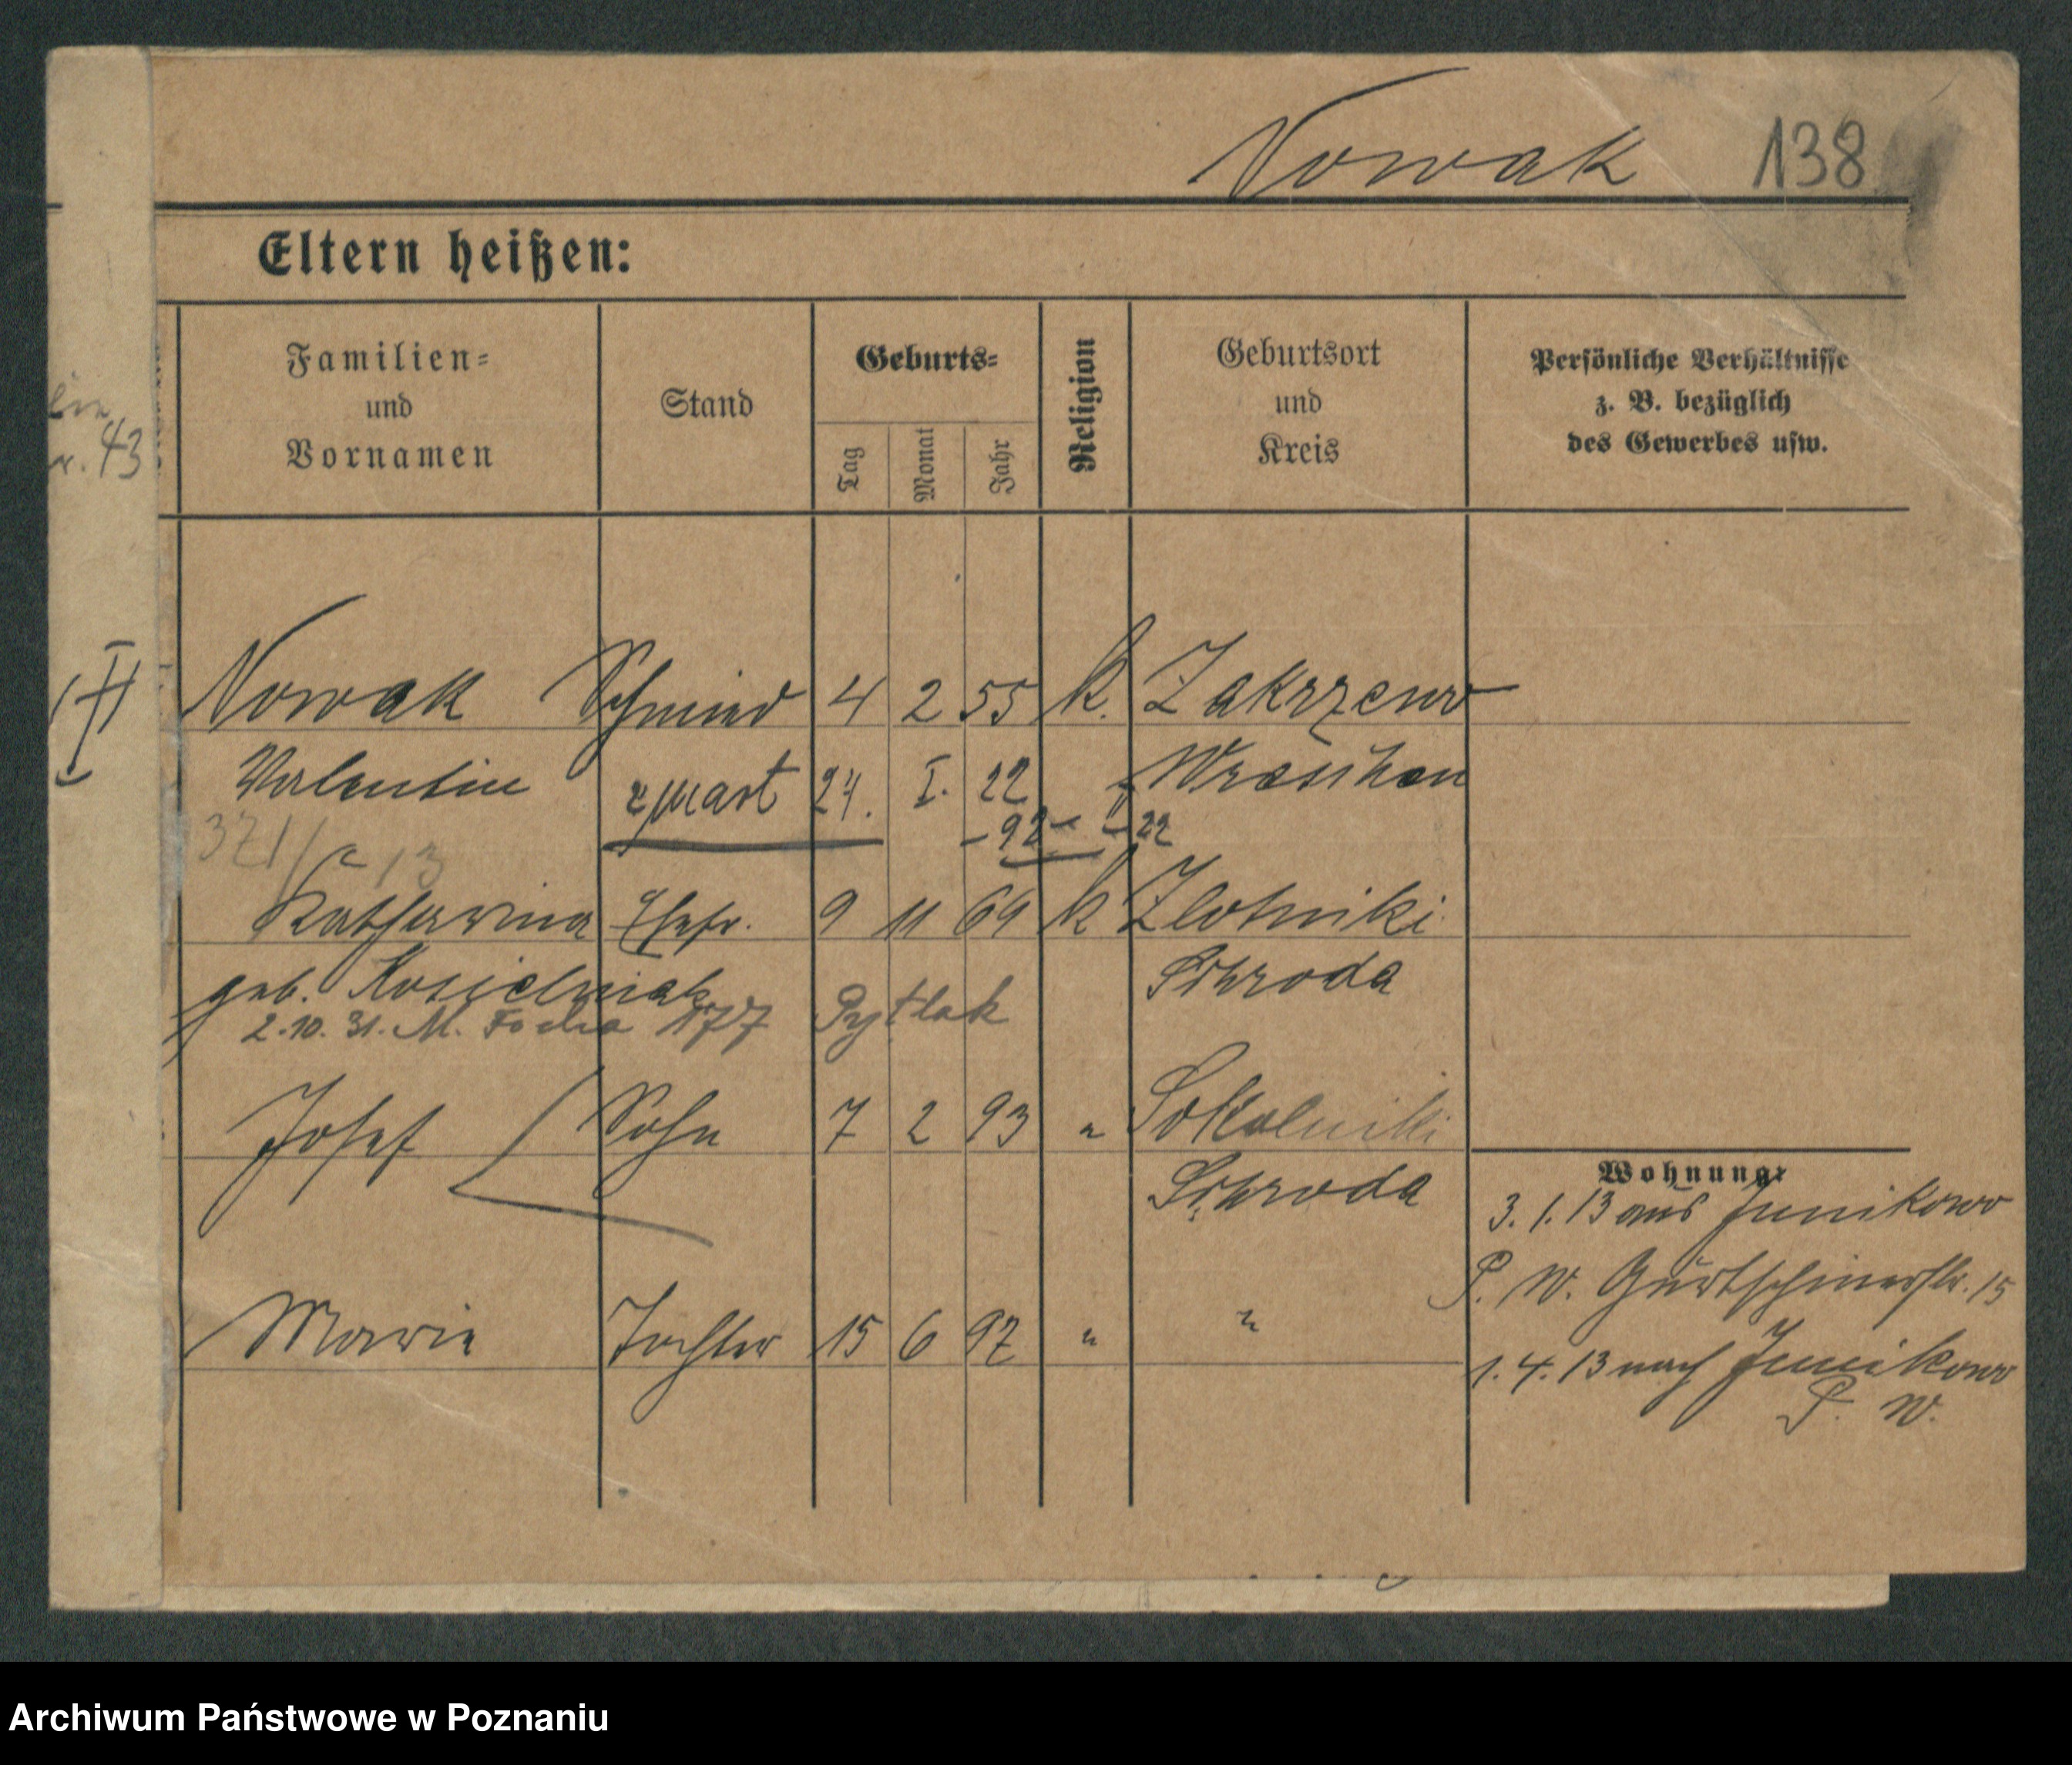 Nowak 138
Eltern heißen:
Familien=
und
Vornamen
Stand
Geburts=
Tag
Monat
Jahr
Religion
Geburtsort
und
Kreis
Persönliche Verhältnisse
z. B. bezüglich
des Gewerbes usw.
r. 43
Nowak Schmied 4 2 55 k. Zakrzewo
Valentin zmarł 24. I. 22 Wreschen
321/ 13 -92- -22
Katharina Ehefr. 9 11 69 k Zlotniki
geb. Kosielniak Schroda
2.10.31. M. Focha 177 Pytlak
Josef Sohn 7 2 93 " Sokolniki
Schroda
Marie Tochter 15 6 97 " "
Wohnung:
3. 1. 13 aus Junikowo
P. W. Gurtschinerstr. 15
1. 4. 13 nach Junikowo
P. W.
Archiwum Państwowe w Poznaniu